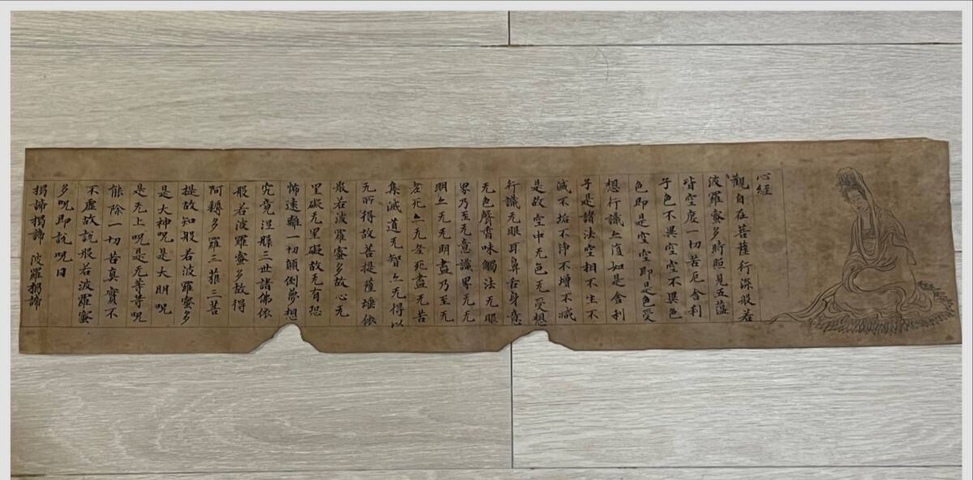 心經
觀自在菩薩行深般若
波羅蜜多時照見五蘊
皆空度一切苦厄舍利
子色不異空空不異色
色即是空空即是色受
想行識亦復如是舍利
子是諸法空相不生不
滅不垢不淨不增不減
是故空中无色无受想
行識无眼耳鼻舌身意
无色聲香味觸法无眼
界乃至无意識界无无
明亦无无明盡乃至无
老死亦无老死盡无苦
集滅道无智亦无得以
无所得故菩提薩埵依
般若波羅蜜多故心无
罣礙无罣礙故无有恐
怖遠離一切顛倒夢想
究竟涅槃三世諸佛依
般若波羅蜜多故得
阿耨多羅三藐三菩
提故知般若波羅蜜多
是大神呪是大明呪
是无上呪是无等等呪
能除一切苦真實不
不虛故說般若波羅蜜
多呪即說呪曰
揭諦揭諦 波羅揭諦